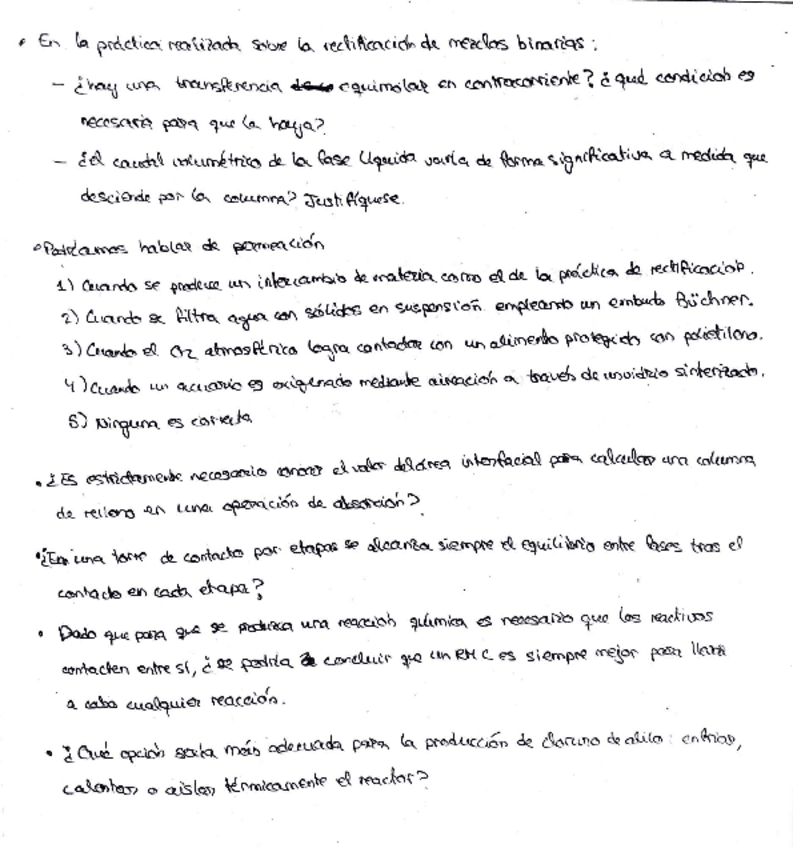 • En la práctica realizada sobre la rectificación de mezclas binarias:
- ¿hay una transferencia equimolar en contracorriente? ¿qué condición es
necesaria para que la haya?
- ¿el caudal volumétrico de la fase líquida varía de forma significativa a medida que
desciende por la columna? Justifíquese.
• Podríamos hablar de permeación
1) Cuando se produce un intercambio de materia como el de la práctica de rectificación.
2) Cuando se filtra agua con sólidos en suspensión empleando un embudo Büchner.
3) Cuando el O2 atmosférico logra contactar con un alimento protegido con polietileno.
4) Cuando un acuario es oxigenado mediante aireación a través de un vidrio sinterizado.
5) Ninguna es correcta
• ¿Es estrictamente necesario conocer el valor del área interfacial para calcular una columna
de relleno en una operación de absorción?
• ¿En una torre de contacto por etapas se alcanza siempre el equilibrio entre fases tras el
contacto en cada etapa?
• Dado que para que se produzca una reacción química es necesario que los reactivos
contacten entre sí, ¿se podría concluir que un RMC es siempre mejor para llevar
a cabo cualquier reacción.
• ¿Qué opción sería más adecuada para la producción de cloruro de alilo: enfriar,
calentar, o aislar, térmicamente el reactor?